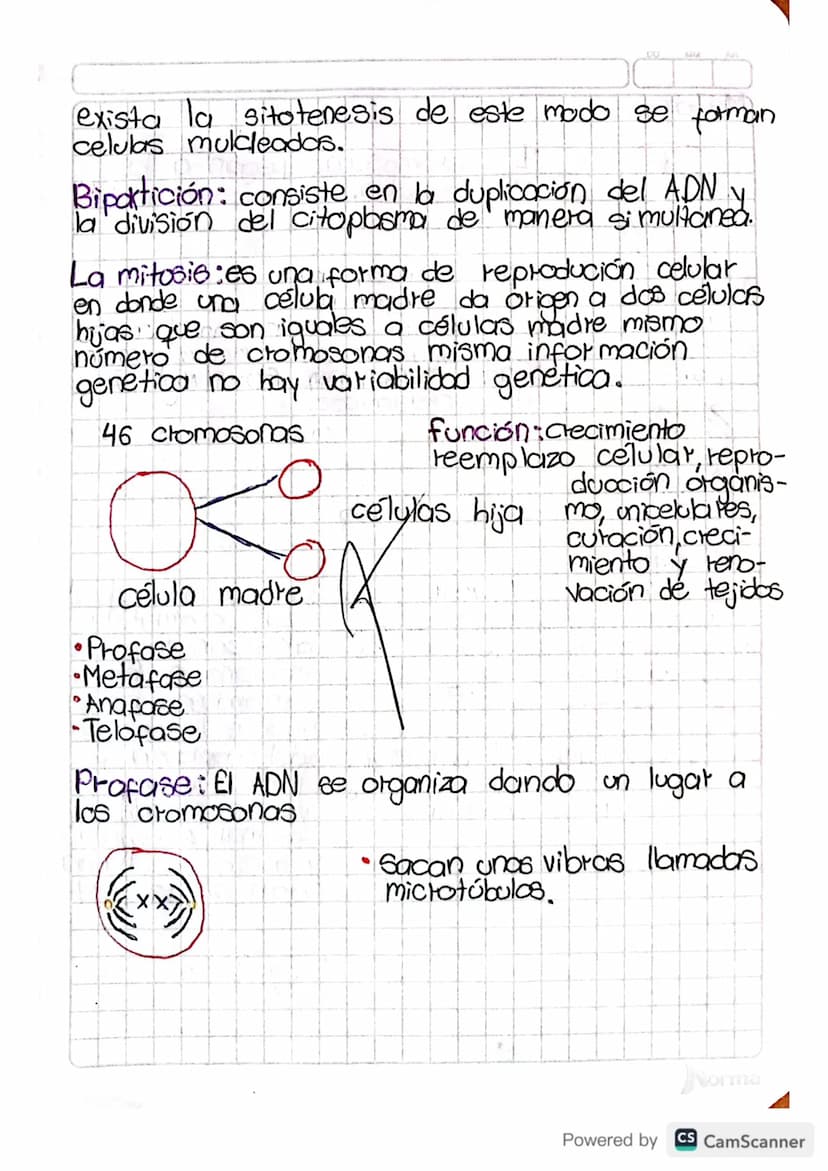 exista la sitotenesis de este modo se forman
celulas mulcleadas.
Bipartición: consiste en la duplicación del ADN y
la división del citoplasma de manera simultánea.
La mitosis: es una forma de reprodución celular
en donde una célula madre da origen a dos células
hijas que son iguales a células madre mismo
número de cromosonas misma información
genética no hay variabilidad genética.
46 cromosonas
función: crecimiento
reemplazo celular, repro-
ducción organis-
mo, unicelulares,
curación, creci-
miento y reno-
vación de tejidos
células hija
célula madre
• Profase
• Metafase
• Anafase
• Telofase
Profase: El ADN se organiza dando un lugar a
los cromosonas
• Sacan unas vibras llamadas
microtúbulos.
Norma
Powered by CS CamScanner